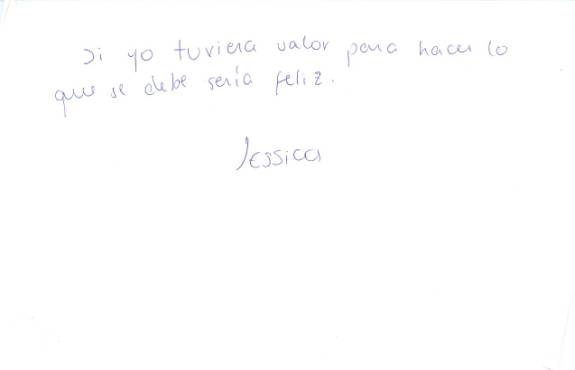 Si yo tuviera valor para hacer lo
que se debe sería feliz.
Jessica